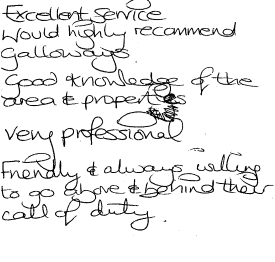 Excellent service
would highly recommend
Galloways.
Good knowledge of the
area & properties
very professional
Friendly & always willing
to go above & behind their
call of duty.